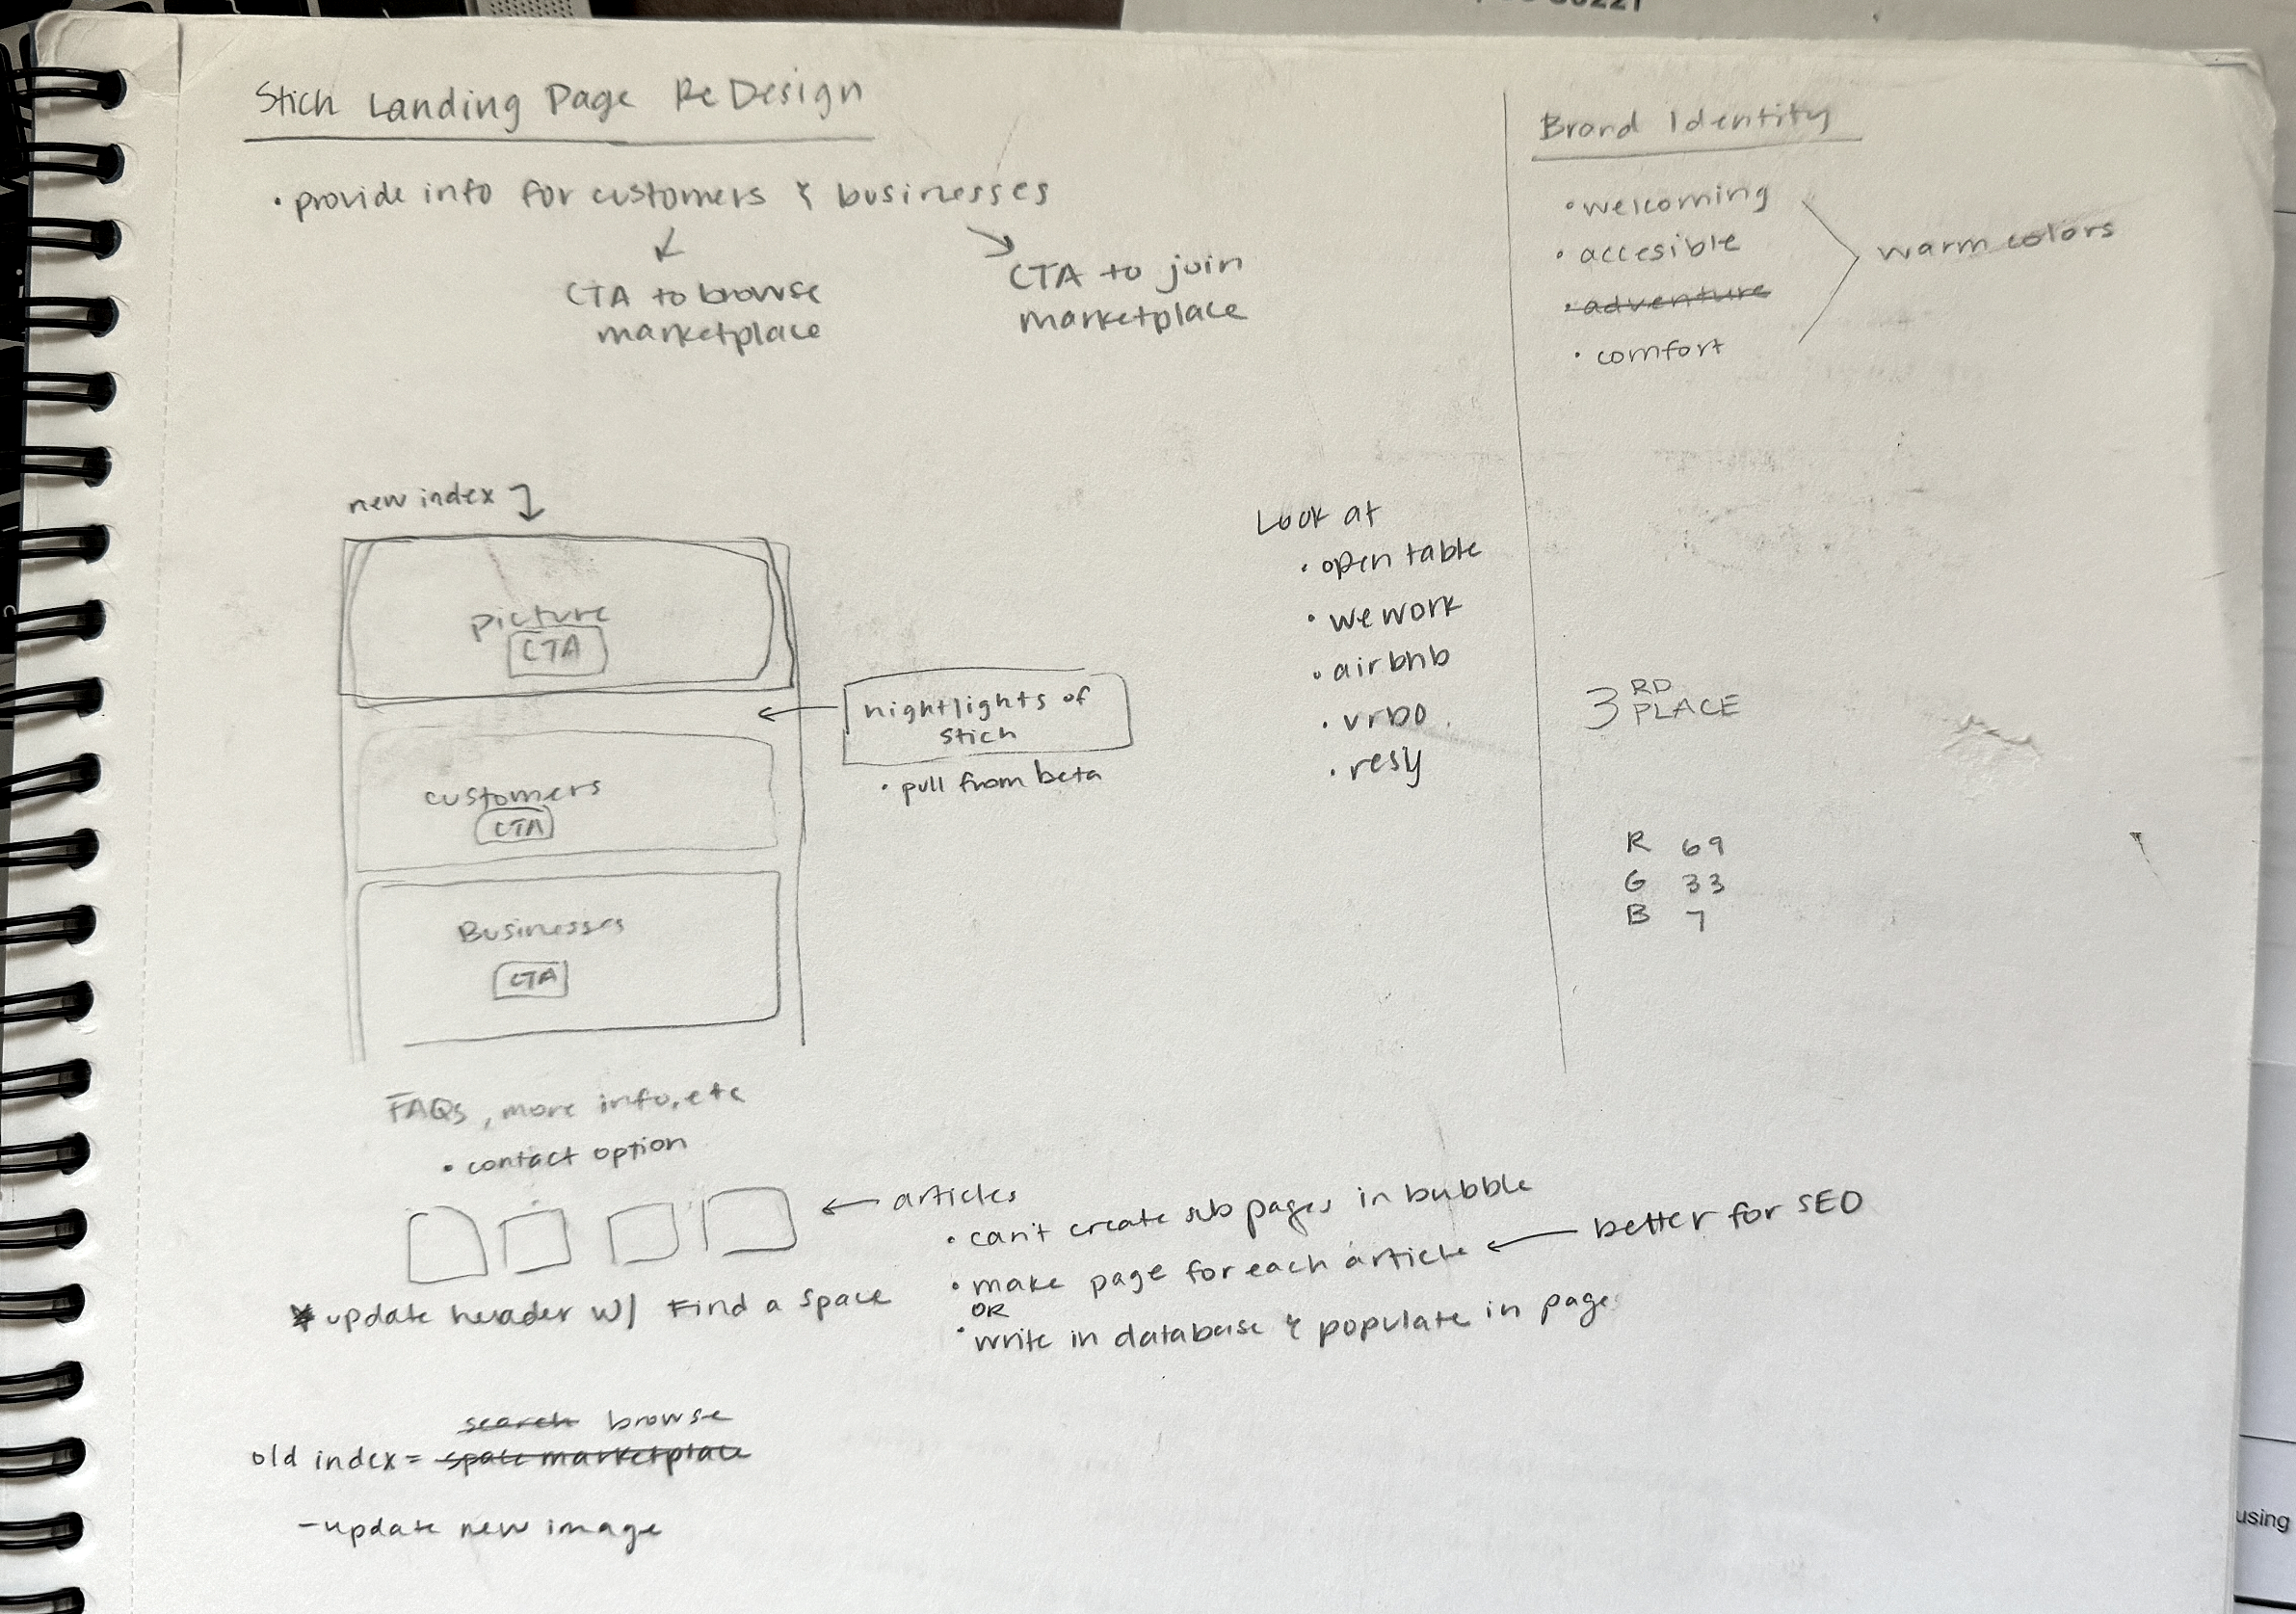 Stich Landing Page ReDesign
• provide info for customers & businesses
CTA to browse
marketplace
CTA to join
marketplace
new index
picture
CTA
highlights of
stich
• pull from beta
customers
CTA
Businesses
CTA
FAQs, more info, etc
• contact option
articles
• can't create sub pages in bubble
• make page for each article
better for SEO
OR
• write in database & populate in pages
* update header w/ Find a space
search browse
old index = space marketplace
- update new image
Look at
• open table
• we work
• airbnb
• vrbo
• resy
Brand Identity
• welcoming
• accesible
• adventure
• comfort
warm colors
3RD PLACE
R 69
G 33
B 7
using